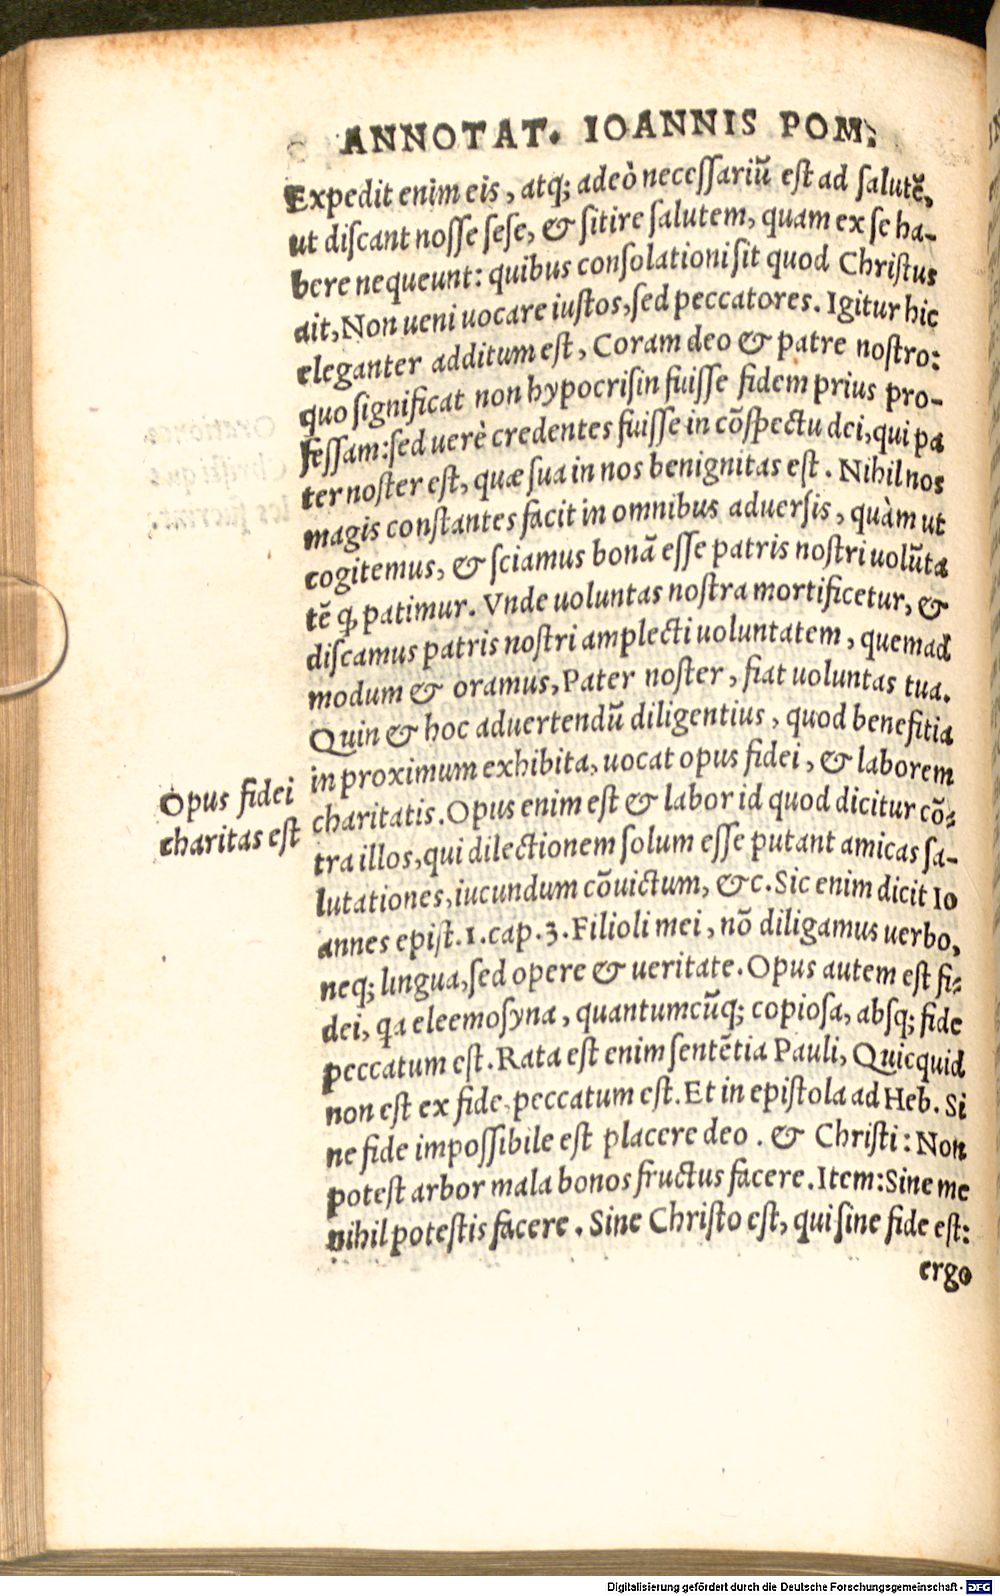 ANNOTAT. IOANNIS POM.
Expedit enim eis, atq; adeò necessariũ est ad salutẽ,
ut discant nosse sese, & sitire salutem, quam ex se ha-
bere nequeunt: quibus consolationi sit quod Christus
ait, Non ueni uocare iustos, sed peccatores. Igitur hic
eleganter additum est, Coram deo & patre nostro:
quo significat non hypocrisin fuisse fidem prius pro-
fessam: sed uerè credentes fuisse in cõspectu dei, qui pa
ter noster est, quæ sua in nos benignitas est. Nihil nos
magis constantes facit in omnibus aduersis, quàm ut
cogitemus, & sciamus bonã esse patris nostri uolũta
tẽ q̃ patimur. Vnde uoluntas nostra mortificetur, &
discamus patris nostri amplecti uoluntatem, quemad
modum & oramus, Pater noster, fiat uoluntas tua.
Quin & hoc aduertendũ diligentius, quod benefitia
in proximum exhibita, uocat opus fidei, & laborem
Opus fidei
charitas est
charitatis. Opus enim est & labor id quod dicitur cõ-
tra illos, qui dilectionem solum esse putant amicas sa-
lutationes, iucundum cõuictum, &c. Sic enim dicit Io
annes epist. 1. cap. 3. Filioli mei, nõ diligamus uerbo,
neq; lingua, sed opere & ueritate. Opus autem est fi-
dei, qa eleemosyna, quantumcũq; copiosa, absq; fide
peccatum est. Rata est enim sentẽtia Pauli, Quicquid
non est ex fide, peccatum est. Et in epistola ad Heb. Si
ne fide impossibile est placere deo. & Christi: Non
potest arbor mala bonos fructus facere. Item: Sine me
nihil potestis facere. Sine Christo est, qui sine fide est:
ergo
Digitalisierung gefördert durch die Deutsche Forschungsgemeinschaft - DFG